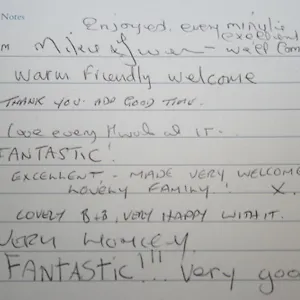 Notes
Enjoyed every minute
excellent
m Mike & Gwen - we'll com
warm friendly welcome
THANK YOU. ADD GOOD TIME.
love every Minute of IT.
FANTASTIC!
EXCELLENT. - MADE VERY WELCOME
LOVELY FAMILY! X.
LOVELY B+B, VERY HAPPY WITH IT.
VERY HOMELY.
FANTASTIC!!! Very goo